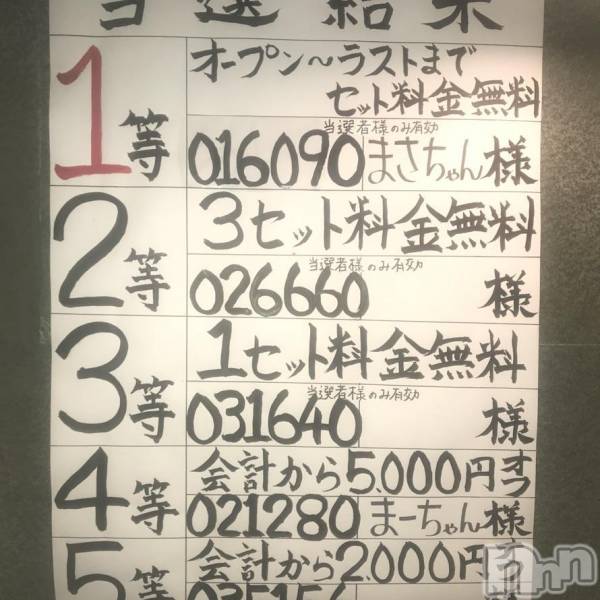 当選結果
1等
オープン～ラストまで
セット料金無料
当選者様のみ有効
016090 まさちゃん様
2等
3セット料金無料
当選者様のみ有効
026660 様
3等
1セット料金無料
当選者様のみ有効
031640 様
4等
会計から5.000円オフ
021280 まーちゃん様
5等
会計から2.000円
035156